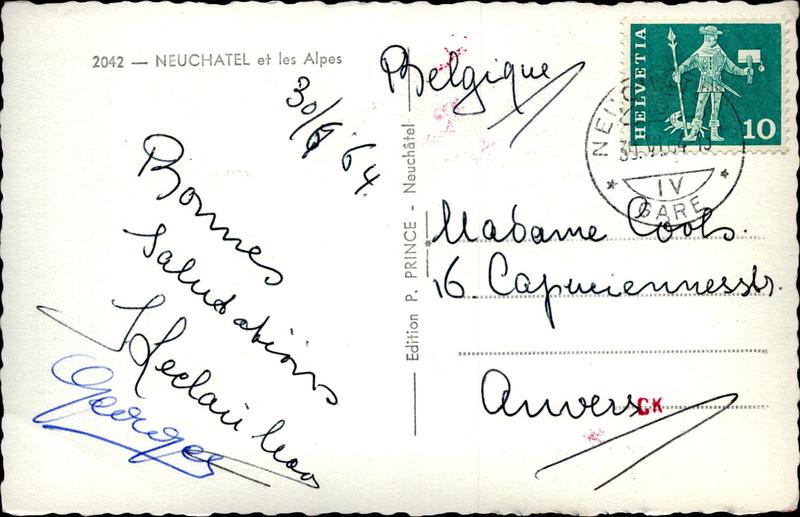 2042 — NEUCHATEL et les Alpes
30/6 64.
Bonnes
Salutations
Georges
Edition P. PRINCE - Neuchâtel
Belgique
HELVETIA
10
NEUCHATEL
30.VI.64-15
IV
GARE
Madame Cools.
16. Capuciennesstr.
Anvers
CK